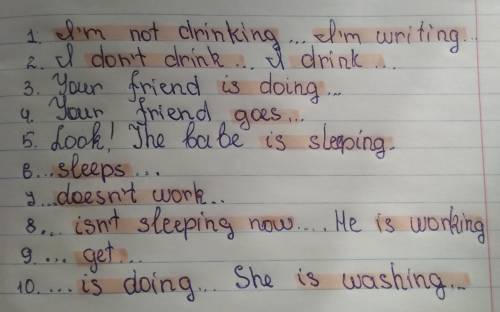 1. I'm not drinking... I'm writing...
2. I don't drink... I drink...
3. Your friend is doing...
4. Your friend goes...
5. Look! The babe is sleeping.
6...sleeps...
7...doesn't work...
8... isn't sleeping now.... He is working
9.... get...
10.... is doing... She is washing...